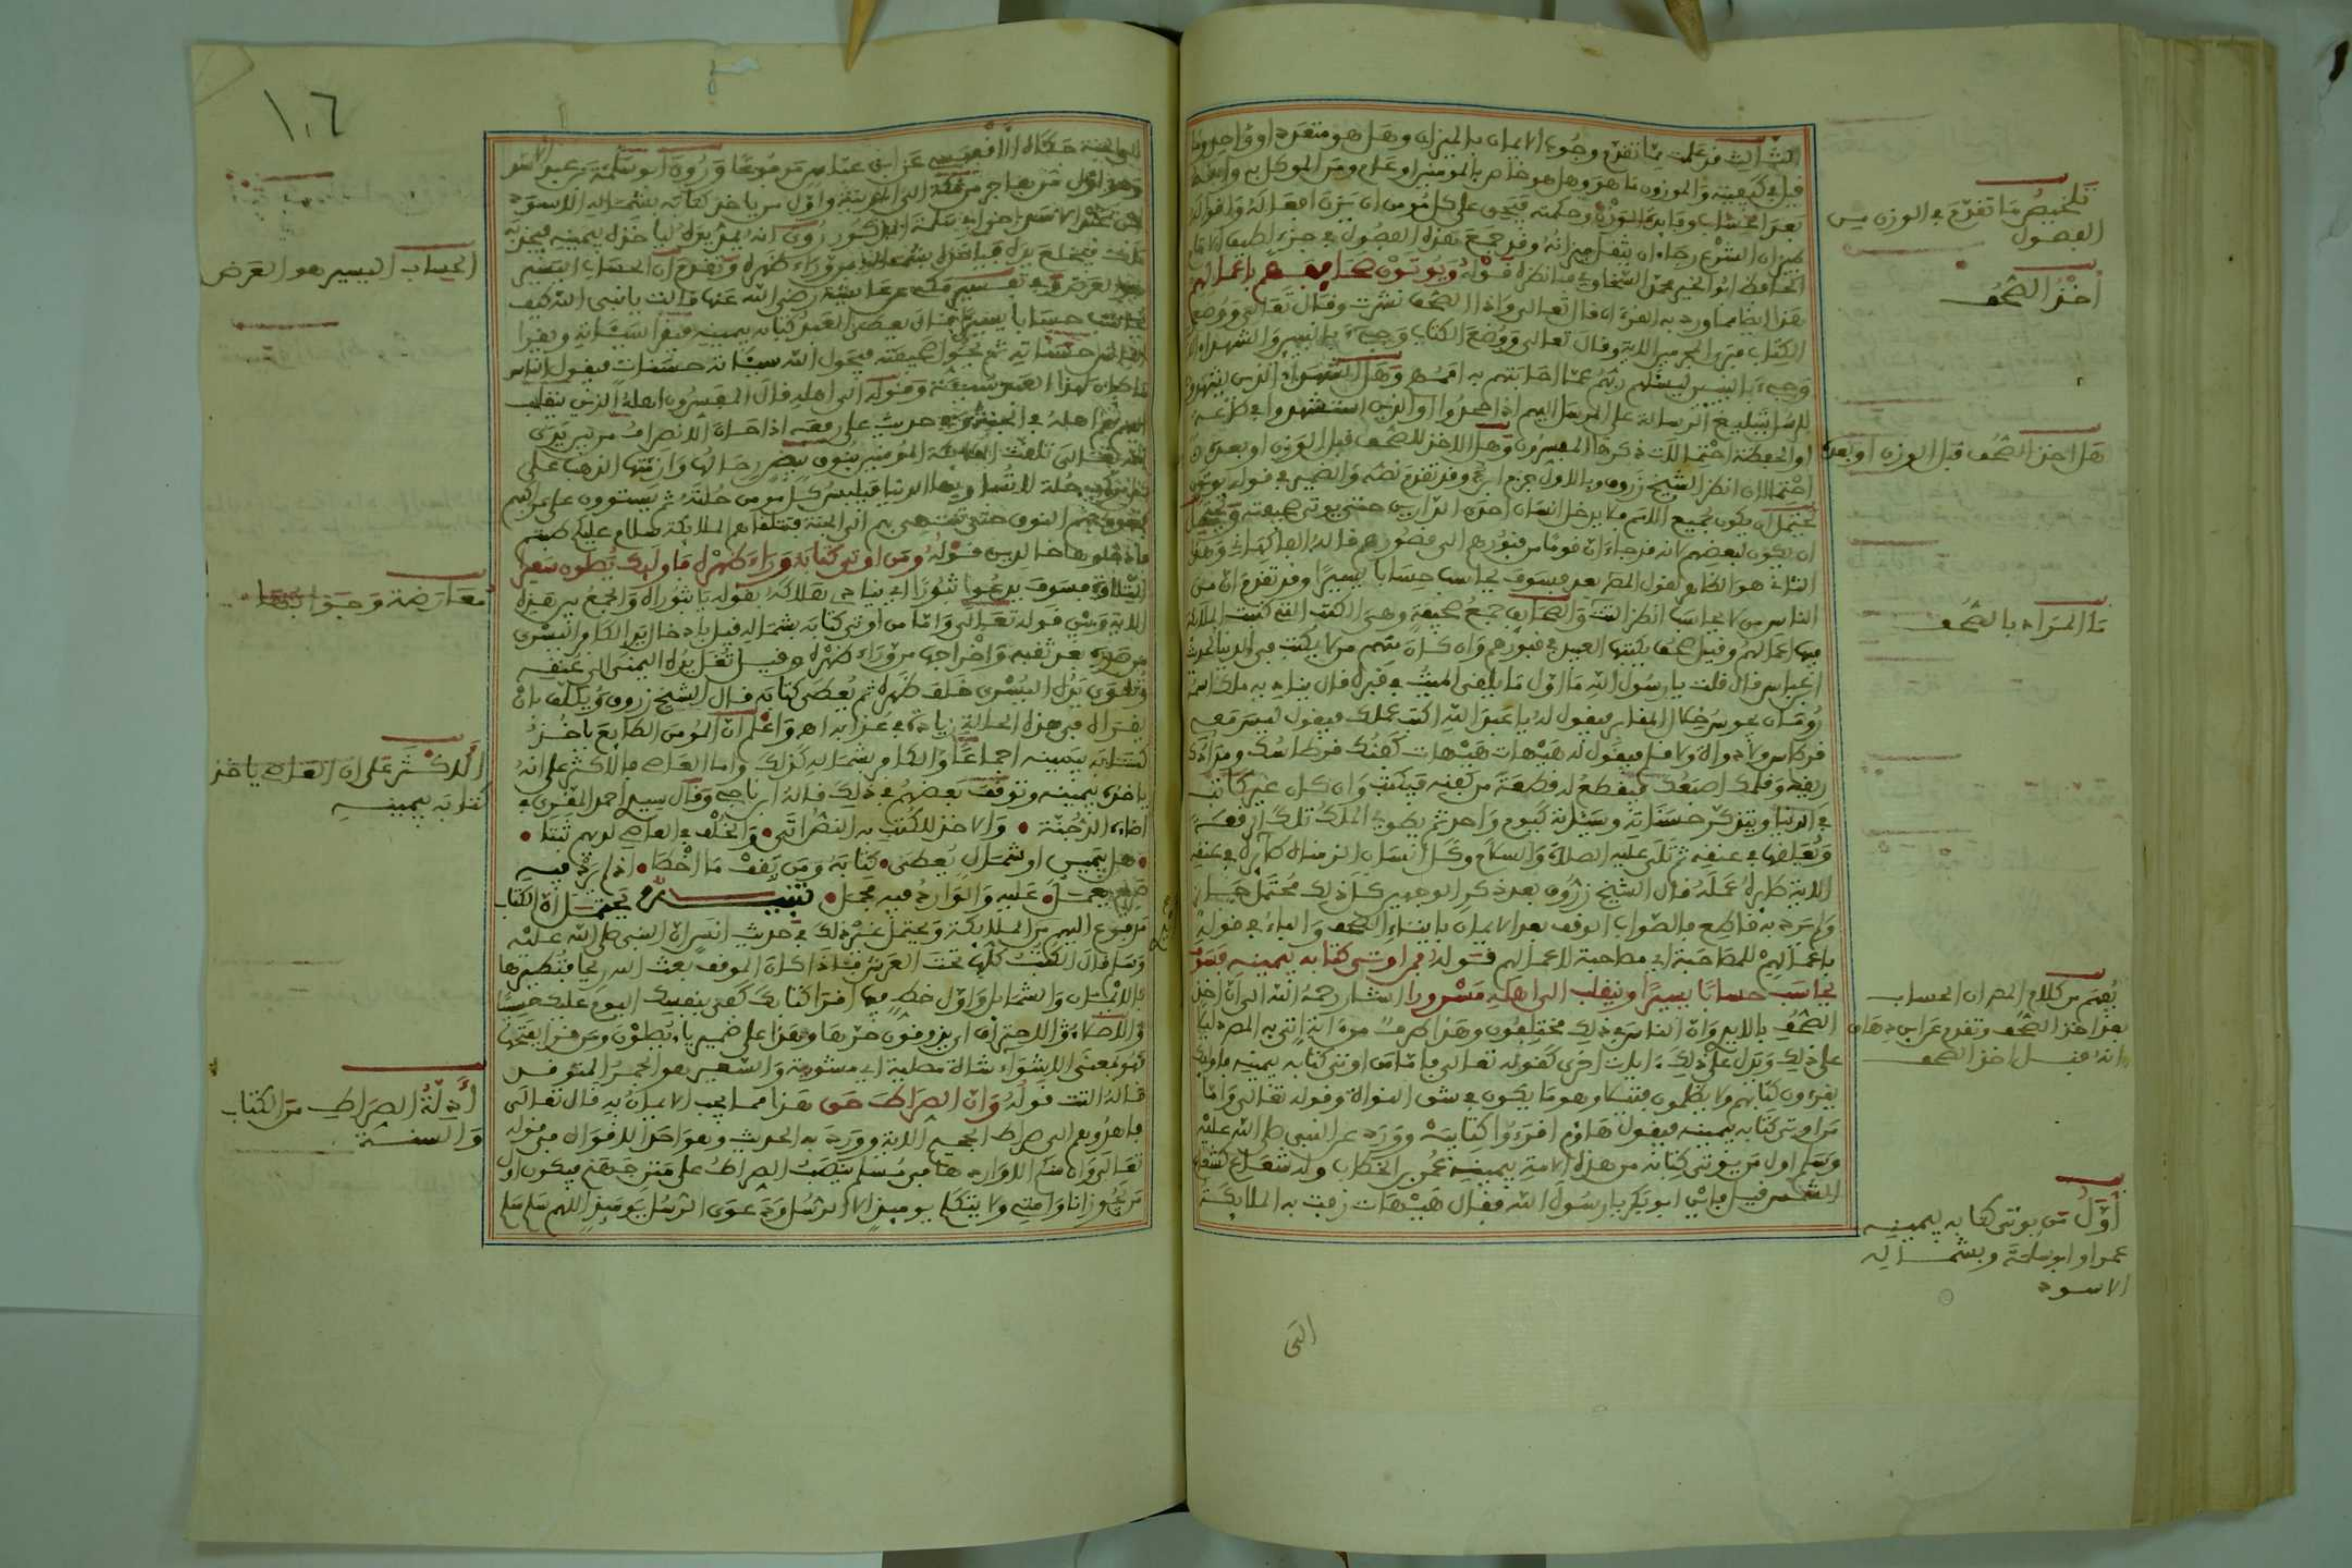 الثالث قد علمت مما تقدم وجوب الايمان بالميزان وهل هو متعدد او واحد وما
قيل في كيفيته والموزون ما هو وهل هو خاص بالمومنين او عام ومن الموكل به وانه
بعد الحساب وفايدة الوزن وحكمته فيجب على كل مومن ان يزن افعاله واقواله
بميزان الشرع رجاء ان يثقل ميزانه وقد جمع هذه الفصول في جزء لطيف الامام
الحافظ ابو الخير محمد السخاوي فانظره قوله ويوتون صحايفهم باعمالهم
هذا ايضا مما ورد به القرءان قال تعالى واذا الصحف نشرت وقال تعالى ووضع
الكتاب فترى المجرمين الاية وقال تعالى ووضع الكتاب وجيء بالنبيين والشهداء
وجيء بالنبيين ليسئلهم ربهم عما اجابتهم به اممهم وهل الشهداء الذين يشهدون
للرسل بتبليغ الرسالة على المرسل اليهم اذا جحدوا او الذين استشهدوا في طاعة
او الحفظة احتمالات ذكرها المفسرون وهل الاخذ للصحف قبل الوزن او بعده
احتمالان انظر الشيخ زروق وبالاول جزم وقد تقدم نصه والضمير في قوله يوتون
يحتمل ان يكون لجميع الامم فلا يدخل انسان احدى الدارين حتى يوتى صحيفته ويحتمل
ان يكون لبعضهم لانه قد جاء ان قوما من قبورهم الى قصورهم قاله الفاكهاني وهذا
الثاني هو الظاهر لقول المص بعد فسوف يحاسب حسابا يسيرا وقد تقدم ان من
الناس من لا يحاسب انظر التت والصحايف جمع صحيفة وهي الكتب التي كتبت الملايكة
فيها اعمالهم وقيل صحف يكتبها العبد في قبورهم وان كان منهم من لا يكتب في الدنيا لحديث
ابن عباس قال قلت يا رسول الله ما اول ما يلقى الميت في قبره قال يناديه ملك اسمه
رومان يجوس خلال المقابر فيقول له يا عبد الله اكتب عملك فيقول ليس معي
قرطاس ولا دواة ولا قلم فيقول له هيهات هيهات كفنك قرطاسك ومدادك
ريقك وقلمك اصبعك فيقطع له قطعة من كفنه فيكتب وان كان غير كاتب
في الدنيا ويتذكر حسناته وسيئاته كيوم واحد ثم يطوي الملك تلك الرقعة
ويعلقها في عنقه ثم تلى عليه الصلاة والسلام وكل انسان الزمناه طائره في عنقه
الاية طائره عمله قال الشيخ زروق بعد ذكر الوجهين كل ذلك محتمل
ولم يرد به قاطع فالصواب الوقف بعد الايمان بايتاء الصحف والباء في قوله
باعمالهم للمصاحبة اي مصاحبة لاعمالهم قوله فمن اوتي كتابه بيمينه فسوف
يحاسب حسابا يسيرا وينقلب الى اهله مسرورا اشار رحمه الله الى ان اخذ
الصحف بالايد وان الناس في ذلك مختلفون وهذا طرف من اية اتى به المص دليلا
على ذلك ويدل على ذلك ءايات اخرى كقوله تعالى فاما من اوتي كتابه بيمينه فاوليك
يقرءون كتابهم ولا يظلمون فتيلا وهو ما يكون في شق النواة وقوله تعالى واما
من اوتي كتابه بيمينه فيقول هاؤم اقرءوا كتابيه وورد عن النبي صلى الله عليه
وسلم اول من يوتى كتابه من هذه الامة بيمينه عمر بن الخطاب وله شعاع كشعاع
الشمس قيل فاين ابو بكر يا رسول الله فقال هيهات زفت به الملايكة
الى
تلخيص ما تقدم في الوزن من
الفصول
اخذ الصحف
هل اخذ الصحف قبل الوزن او بعده
ما المراد بالصحف
يفهم من كلام المص ان الحساب
بعد اخذ الصحف وتقدم عن ابن دهاق
انه قبل اخذ الصحف
اول من يوتى كتابه بيمينه
عمر او ابو سلمة وبشماله
الاسود
١٠٦
الى الجنة حكاه الاقفهسي عن ابن عباس مرفوعا وروي ابو سلمة بن عبد الاسد
وهو اول من هاجر من مكة الى المدينة واول من ياخذ كتابه بشماله الاسود
ابن عبد الاسد اخو ابي سلمة المذكور روي انه يمد يده لياخذه بيمينه فيجذبه
ملك فيخلع يده فياخذه بشماله من وراء ظهره وتقدم ان الحساب اليسير
هو العرض وفي تفسير عن عايشة رضي الله عنها قالت يا نبي الله كيف
يحاسب حسابا يسيرا قال يعطى العبد كتابه بيمينه فيقرا سيئاته ويقرا
الناس حسناته ثم تحول صحيفته فيحول الله سيئاته حسنات فيقول الناس
ما كان لهذا العبد سيئة وقوله الى اهله قال المفسرون اهله الذين ينقلب
اليهم هم اهله في الجنة وفي حديث علي رفعه اذا كان الانصراف من بين يدي
الله تعالى تلقت الملايكة المومنين بنوق بيض رحالها وازمتها الذهب على
كل مركب حلة لا تساويها الدنيا فيلبس كل مومن حلته ثم يستوون على مراكبهم
فتهوي بهم النوق حتى تنتهي بهم الى الجنة فتتلقاهم الملايكة سلام عليكم طبتم
فادخلوها خالدين قوله ومن اوتي كتابه وراء ظهره فاوليك يصلون سعيرا
التلاوة فسوف يدعوا ثبورا اي ينادي هلاكه بقوله يا ثبوراه والجمع بين هذه
الاية وبين قوله تعالى واما من اوتي كتابه بشماله قيل بادخال يد الكافر اليسرى
من صدره بعد ثقبه واخراجها من وراء ظهره وقيل تغل يده اليمنى الى عنقه
وتلوى يده اليسرى خلف ظهره ثم يعطى كتابه قال الشيخ زروق ويكلف بان
يقراه في هذه الحالة زيادة في عذابه اه واعلم ان المومن الطايع ياخذ
كتابه بيمينه اجماعا والكافر بشماله كذلك واما العاصي فالاكثر على انه
ياخذه بيمينه وتوقف بعضهم في ذلك قاله ابن ناجي وقال سيد احمد المقري في
اضاءة الدجنة • والاخذ للكتب به النص اتى • والخلف في العاصي لديهم ثبتا •
• هل بيمين او شمال يعطى • كتابه ومن يقف ما اخطا • اذ لم يرد فيه
صريح يعمل • عليه والوارد فيه مجمل • تنبيه يحتمل ان الكتاب
مدفوع اليهم من الملايكة ويحتمل غير ذلك في حديث انس ان النبي صلى الله عليه
وسلم قال الكتب كلها تحت العرش فاذا كان الموقف بعث الله ريحا فتطيرها
بالايمان والشمايل واول خط فيها اقرا كتابك كفى بنفسك اليوم عليك حسيبا
والاصلاء والاحتراق اي يذوقون حرها وهذا على ضم ياء يصلون ومن قرا بفتحها
فهو بمعنى الاشتواء شاة مصلية اي مشوية والسعير هو الجمر المتوقد
قاله التت قوله وان الصراط حق هذا مما يجب الايمان به قال تعالى
فاهدوهم الى صراط الجحيم الاية وورد به الحديث وهو احد الاقوال في قوله
تعالى وان منكم الا واردها في مسلم ينصب الصراط على متن جهنم فيكون اول
من يجوز انا وامتي ولا يتكلم يوميذ الا الرسل ودعوى الرسل يوميذ اللهم سلم سلم
الحساب اليسير هو العرض
معارضة وجوابها
الاكثر على ان العاصي ياخذ
كتابه بيمينه
ادلة الصراط من الكتاب
والسنة